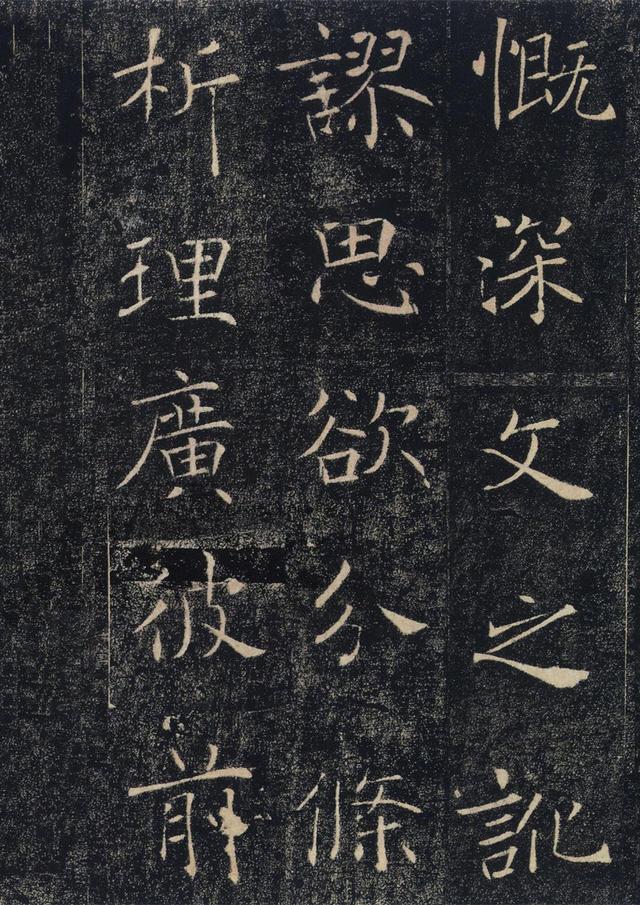 慨深文之訛
謬思欲分條
析理廣彼前